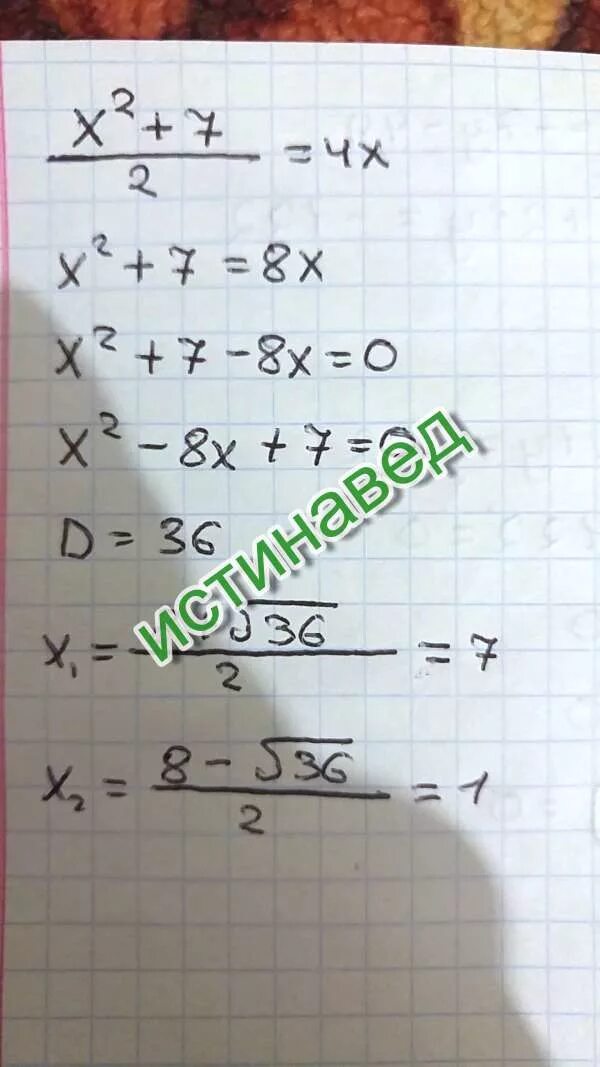 x² + 7 / 2 = 4x
x² + 7 = 8x
x² + 7 - 8x = 0
x² - 8x + 7 =
D = 36
x₁ = √36 / 2 = 7
x₂ = 8 - √36 / 2 = 1
истинавед